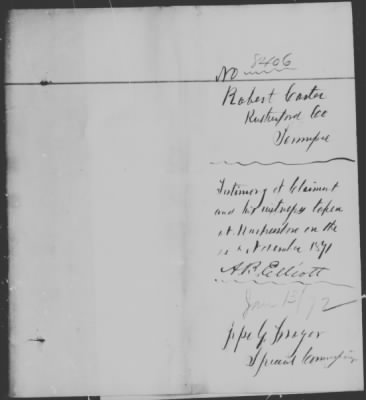 No 8406
Robert Carter
Rutherford Co
Tennessee
Testimony of Claimant
and his witnesses taken
at Murfreesboro on the
November 1871
A. R. Elliott
Jan 15/72
Special